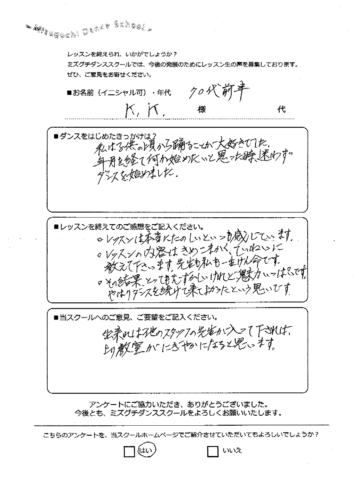 Mizoguchi Dance School
レッスンを終えられ、いかがでしょうか？
ミズグチダンススクールでは、今後の発展のためにレッスン生の声を募集しております。
ぜひ、ご意見をお寄せください。
■お名前（イニシャル可）・年代 70代前半
K. K. 様 代
■ダンスをはじめたきっかけは？
私は子供の頃から踊ることが大好きでした。
年月を経て何か始めたいと思った時、迷わず
ダンスを始めました。
■レッスンを終えてのご感想をご記入ください。
○レッスンは本当にたのしいといつも感じています。
○レッスンの内容はきめこまかく、ていねいに
教えて下さいます。先生も私も一生けん命です。
○その結果、とってもむずかしいけれど魅力いっぱいです。
やはりダンスを続けて来てよかったという思いです。
■当スクールへのご意見、ご要望をご記入ください。
出来れば他のスタッフの先生が入って下されば、
より教室がにぎやかになると思います。
アンケートにご協力いただき、ありがとうございました。
今後とも、ミズグチダンススクールをよろしくお願いいたします。
こちらのアンケートを、当スクールホームページでご紹介させていただいてもよろしいでしょうか？
はい いいえ